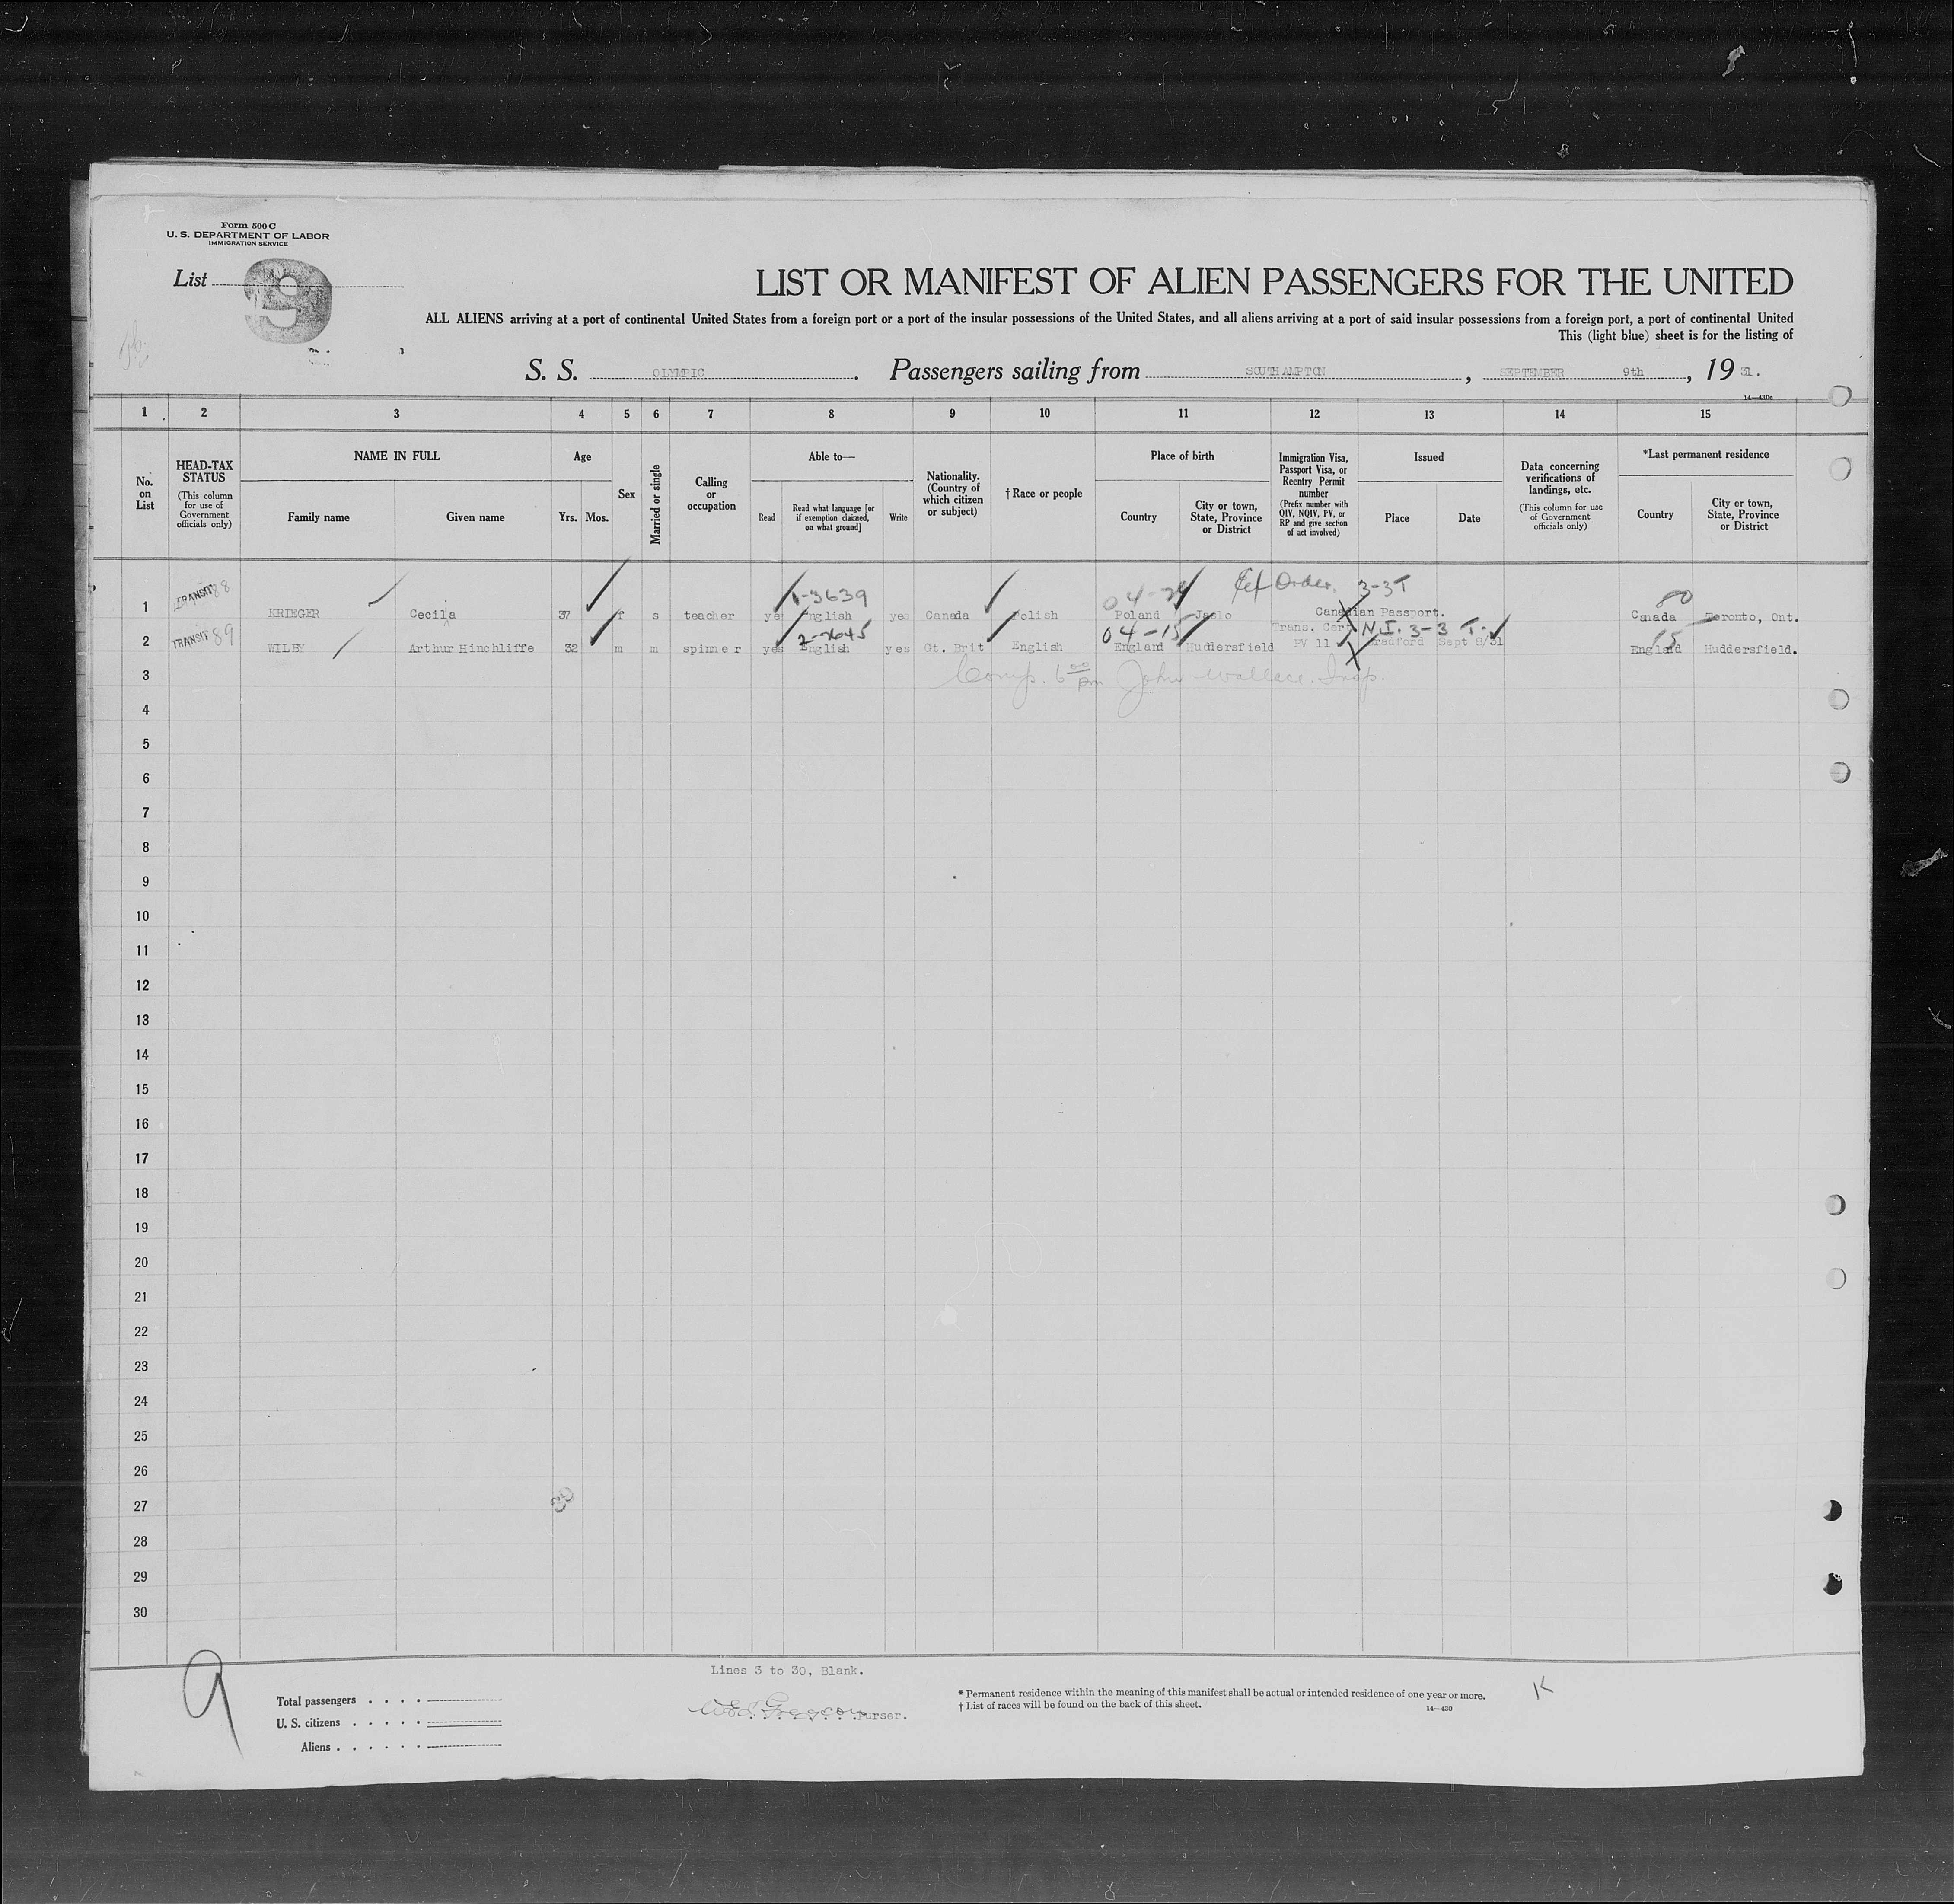 Form 500 C
U. S. DEPARTMENT OF LABOR
IMMIGRATION SERVICE
List 9
LIST OR MANIFEST OF ALIEN PASSENGERS FOR THE UNITED
ALL ALIENS arriving at a port of continental United States from a foreign port or a port of the insular possessions of the United States, and all aliens arriving at a port of said insular possessions from a foreign port, a port of continental United
This (light blue) sheet is for the listing of
S. S. OLYMPIC. Passengers sailing from SOUTHAMPTON, SEPTEMBER 9th, 19 31.
14—430a
1 2 3 4 5 6 7 8 9 10 11 12 13 14 15
No. on List
HEAD-TAX STATUS
(This column for use of Government officials only)
NAME IN FULL
Family name
Given name
Age
Yrs.
Mos.
Sex
Married or single
Calling or occupation
Able to—
Read
Read what language [or if exemption claimed, on what ground]
Write
Nationality. (Country of which citizen or subject)
†Race or people
Place of birth
Country
City or town, State, Province or District
Immigration Visa, Passport Visa, or Reentry Permit number
(Prefix number with QIV, NQIV, PV, or RP and give section of act involved)
Issued
Place
Date
Data concerning verifications of landings, etc.
(This column for use of Government officials only)
*Last permanent residence
Country
City or town, State, Province or District
1-3639 04-24 Order. 3-3T 80
1 TRANSIT 88 KRIEGER Cecila 37 f s teacher yes English yes Canada Polish Poland Jaslo Canadian Passport. Canada Toronto, Ont.
2-2645 04-15 Trans. Cert N.I. 3-3 T. 15
2 TRANSIT 89 WILBY Arthur Hinchliffe 32 m m spinner yes English yes Gt. Brit English England Huddersfield PV 11 Bradford Sept 8/31 England Huddersfield.
3 Comp. 6 00 pm John Wallace. Insp.
4
5
6
7
8
9
10
11
12
13
14
15
16
17
18
19
20
21
22
23
24
25
26
27
30
28
29
30
9
Lines 3 to 30, Blank.
Total passengers . . . .
U. S. citizens . . . . .
Aliens . . . . . .
Purser.
* Permanent residence within the meaning of this manifest shall be actual or intended residence of one year or more.
† List of races will be found on the back of this sheet.
14—430
K